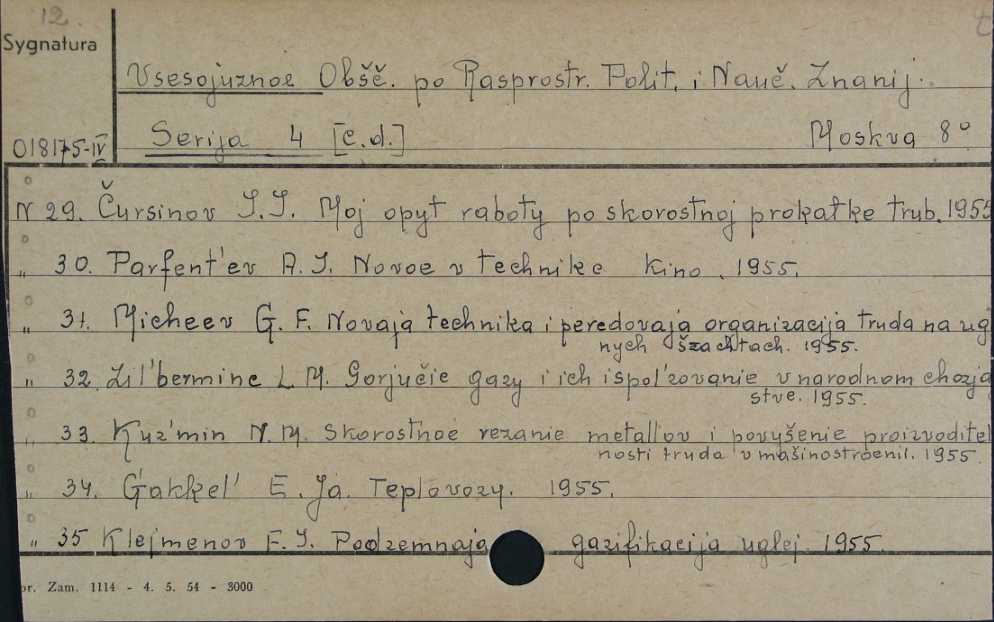 12.
Sygnatura
Vsesojuznoe Obšč. po Rasprostr. Polit. i Nauč. Znanij.
018175-IV Serija 4 [c.d.] Moskva 8°
N 29. Čursinov I.I. Moj opyt raboty po skorostnoj prokatke trub. 1955
„ 30. Parfent'ev A.I. Novoe v technike kino. 1955.
„ 31. Micheev G. F. Novaja technika i peredovaja organizacija truda na ug
nych šzachtach. 1955.
„ 32. Zil'bermine L M. Gorjučie gazy i ich ispol'zovanie v narodnom chozja
stve. 1955.
„ 33. Kuz'min N.M. Skorostnoe rezanie metallov i povyšenie proizvoditel
nosti truda v mašinostroenii. 1955.
„ 34. Gakkel' E. Ja. Teplovozy. 1955.
„ 35 Klejmenov F.I. Podzemnaja gazifikacija uglej. 1955.
or. Zam. 1114 - 4. 5. 54 - 3000